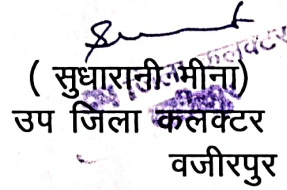 ( सुधारानी मीना)
उप जिला कलक्टर
वजीरपुर